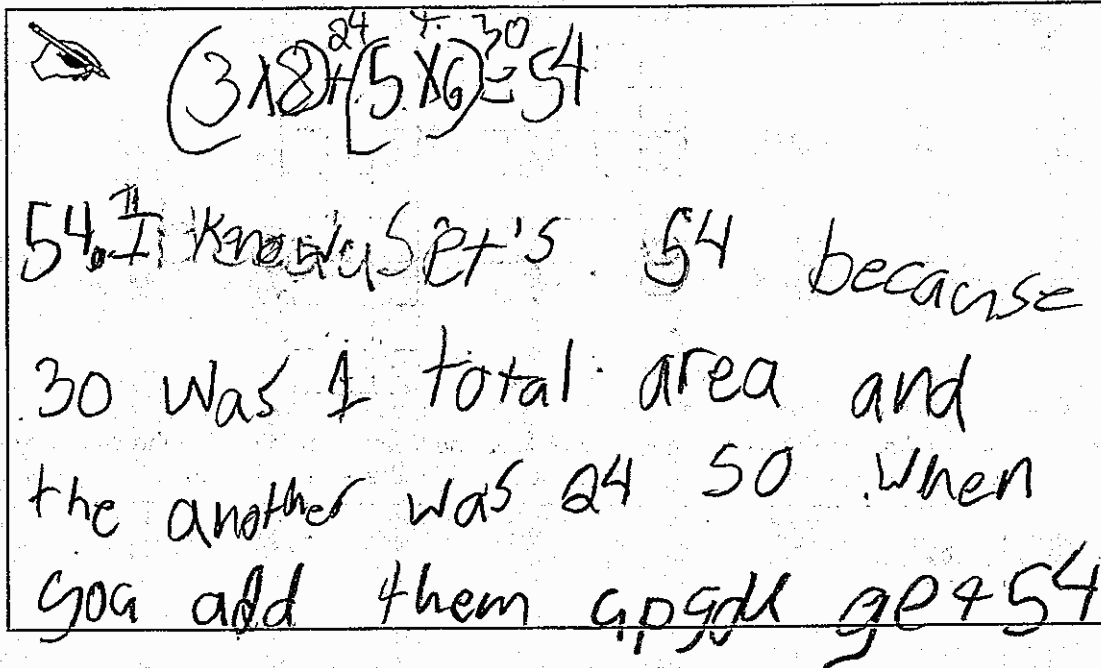 24 + 30
(3x8)+(5x6)=54
54. I know it's 54 because
30 was 1 total area and
the another was 24 so when
you add them up you get 54